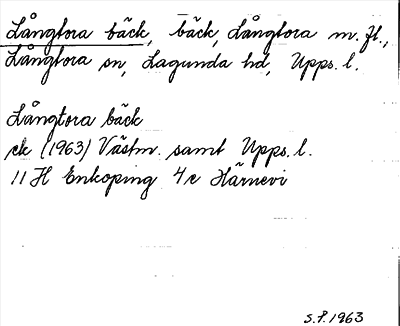 Långtora bäck, bäck, Långtora m. fl.,
Långtora sn, Lagunda hd, Upps. l.
Långtora bäck
ek (1963) Västm. samt Upps. l.
11 H Enköping 4 c Härnevi
S.P. 1963